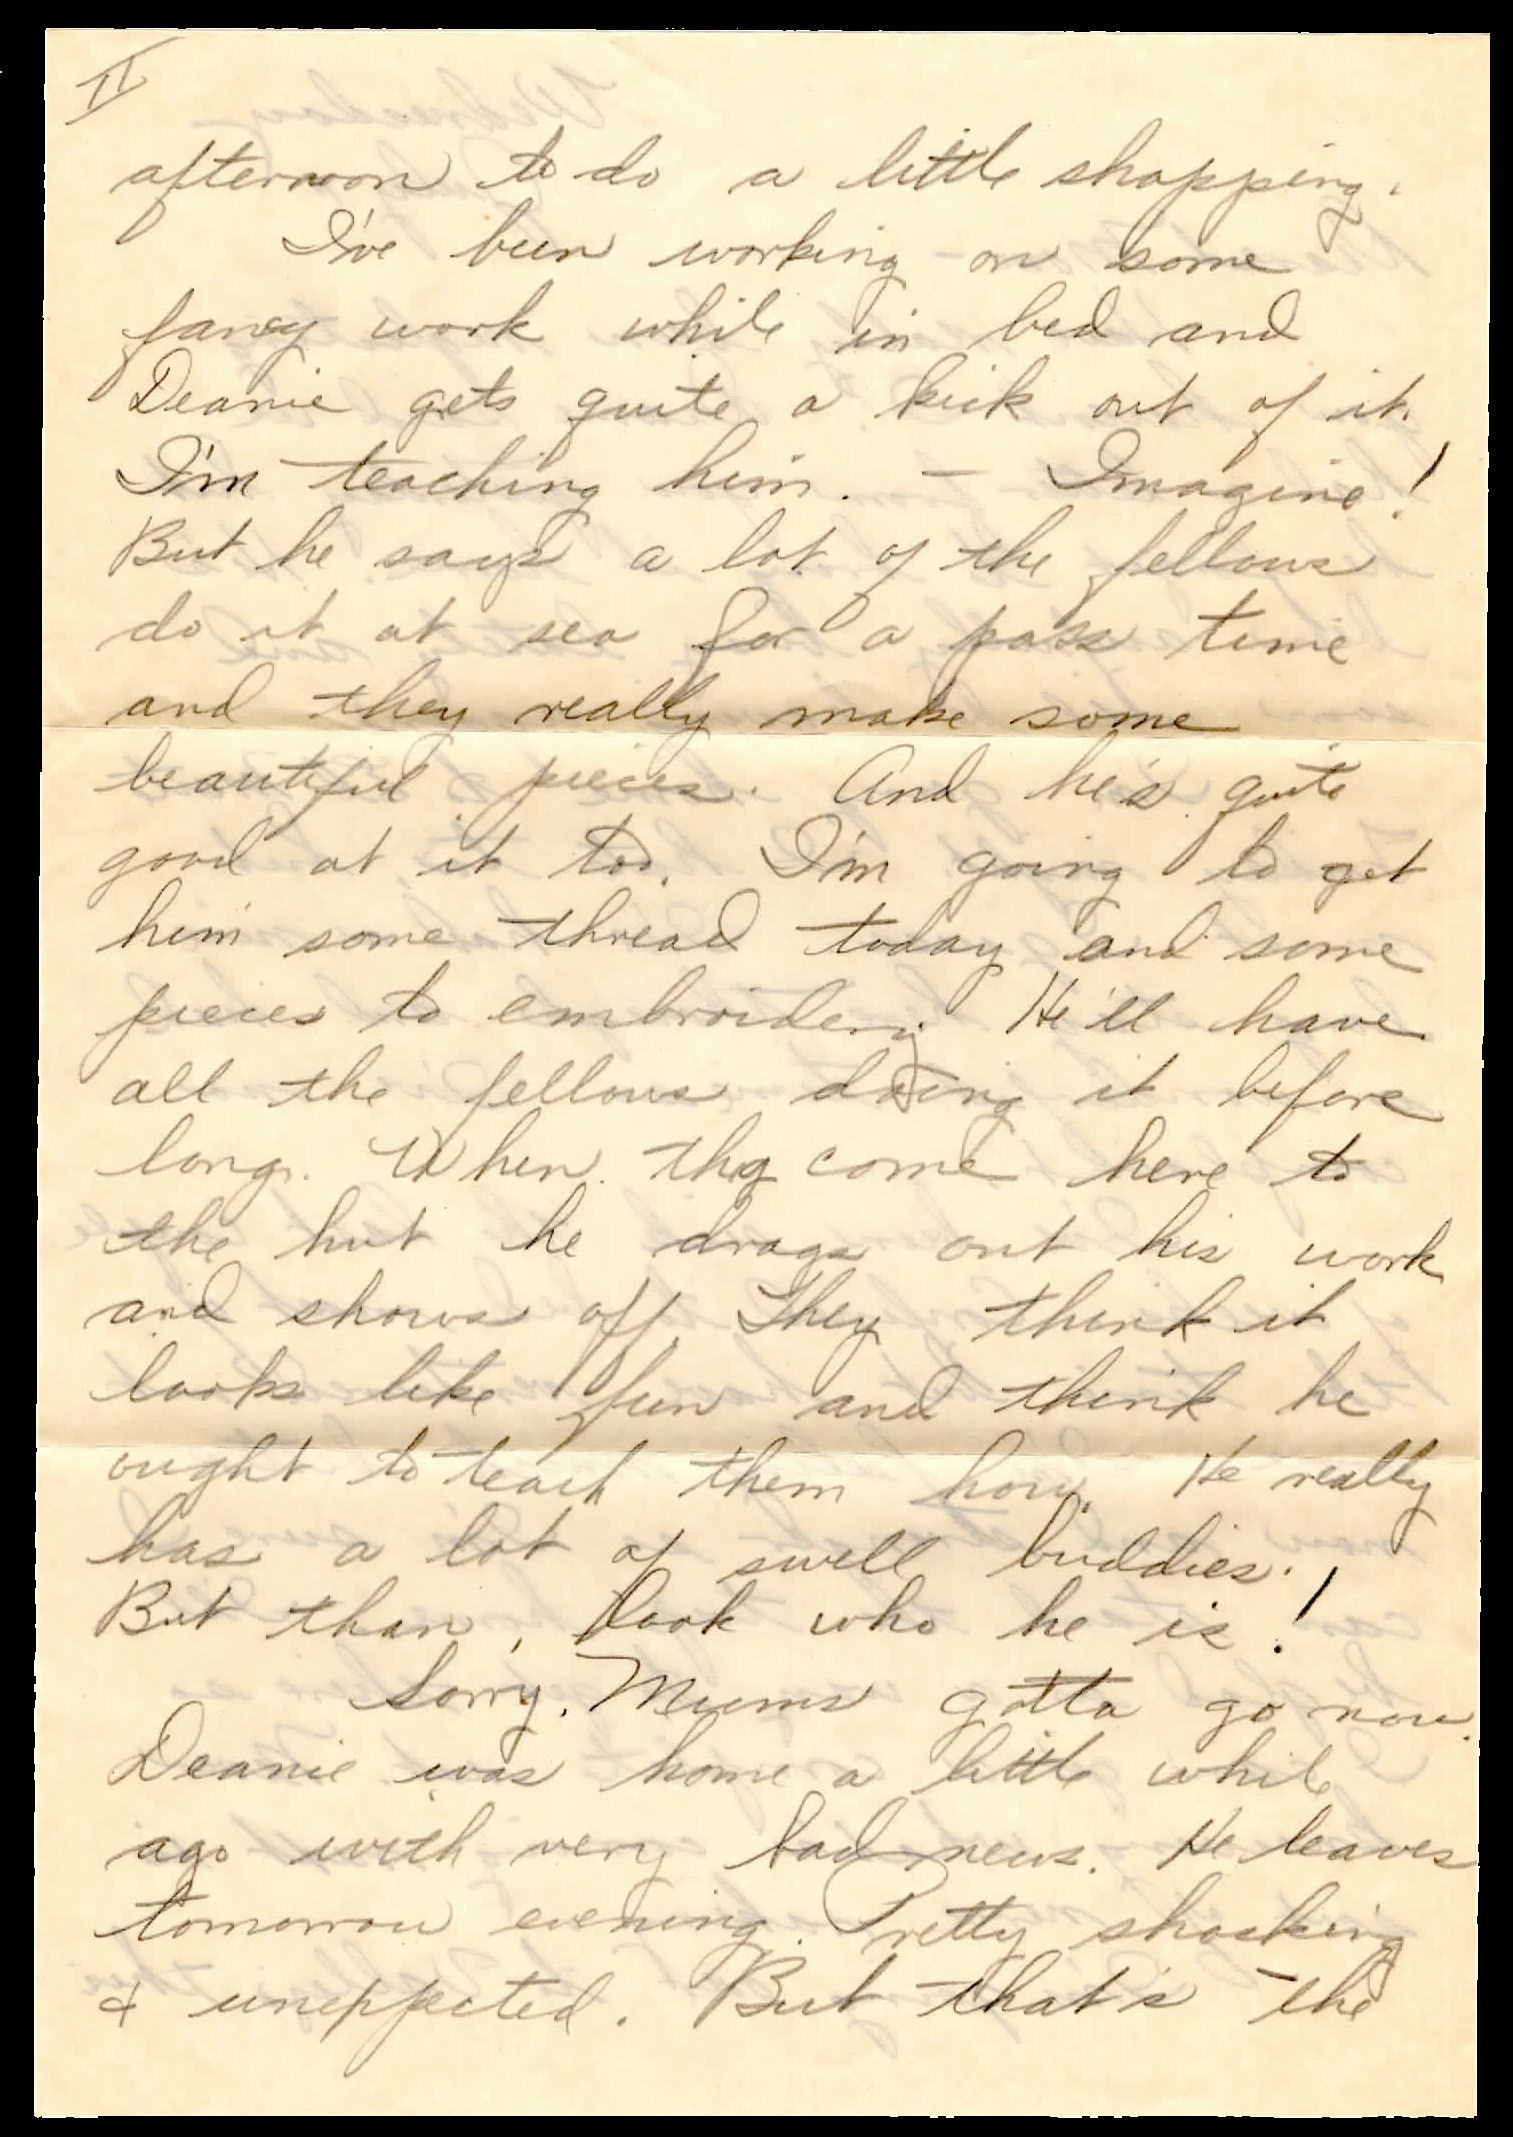 II
afternoon to do a little shopping.
I've been working on some
fancy work while in bed and
Deanie gets quite a kick out of it.
I'm teaching him. - Imagine!
But he says a lot of the fellows
do it at sea for a pass time
and they really make some
beautiful pieces. And he's quite
good at it too. I'm going to get
him some thread today and some
pieces to embroidery. He'll have
all the fellows doing it before
long. When they come here to
the hut he drags out his work
and shows off. They think it
looks like fun and think he
ought to teach them how. He really
has a lot of swell buddies.
But than, look who he is!
Sorry, Mums gotta go now.
Deanie was home a little while
ago with very bad news. He leaves
tomorrow evening. Pretty shocking
& uneppected. But that's the